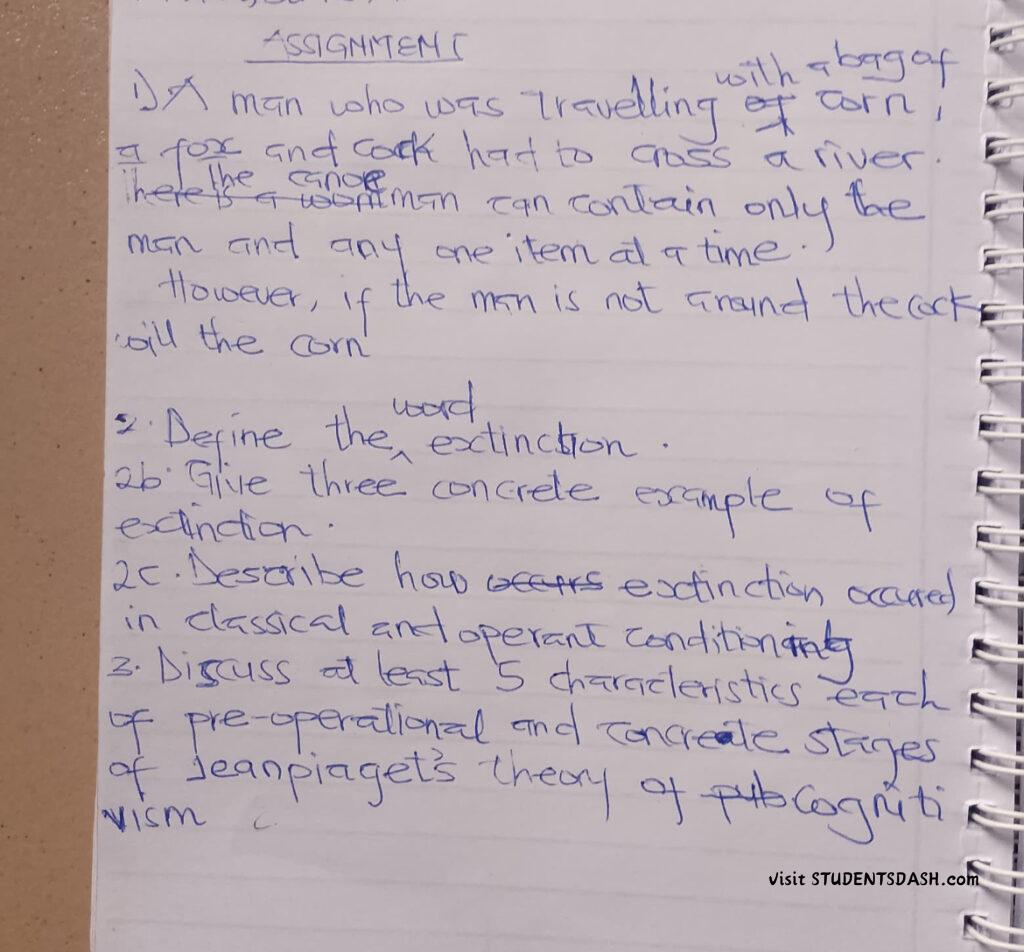 ASSIGNMENT
1) A man who was travelling with a bag of corn,
a fox and cock had to cross a river.
the canoe man can contain only the
man and any one item at a time.
However, if the man is not around the cock
will the corn
2. Define the word extinction.
2b. Give three concrete example of
extinction.
2c. Describe how occurs extinction occured
in classical and operant conditioning
3. Discuss at least 5 characteristics each
of pre-operational and concrete stages
of Jeanpiaget's theory of cogniti
vism
Visit STUDENTSDASH.com